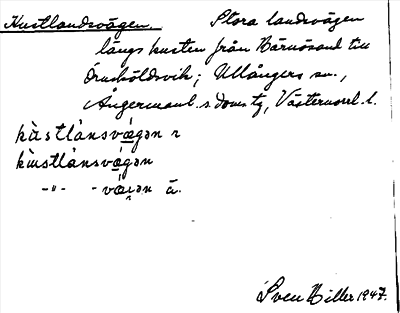 Kustlandsvägen. Stora landsvägen
längs kusten från Härnösand till
Örnsköldsvik; Ullångers sn.,
Ångermanl. s doms tg, Västernorrl. l.
kùstlànsvǽgən r
kùstlànsvǽgən
-"- -vǽi̯ən ä.
Sven Hiller 1947.